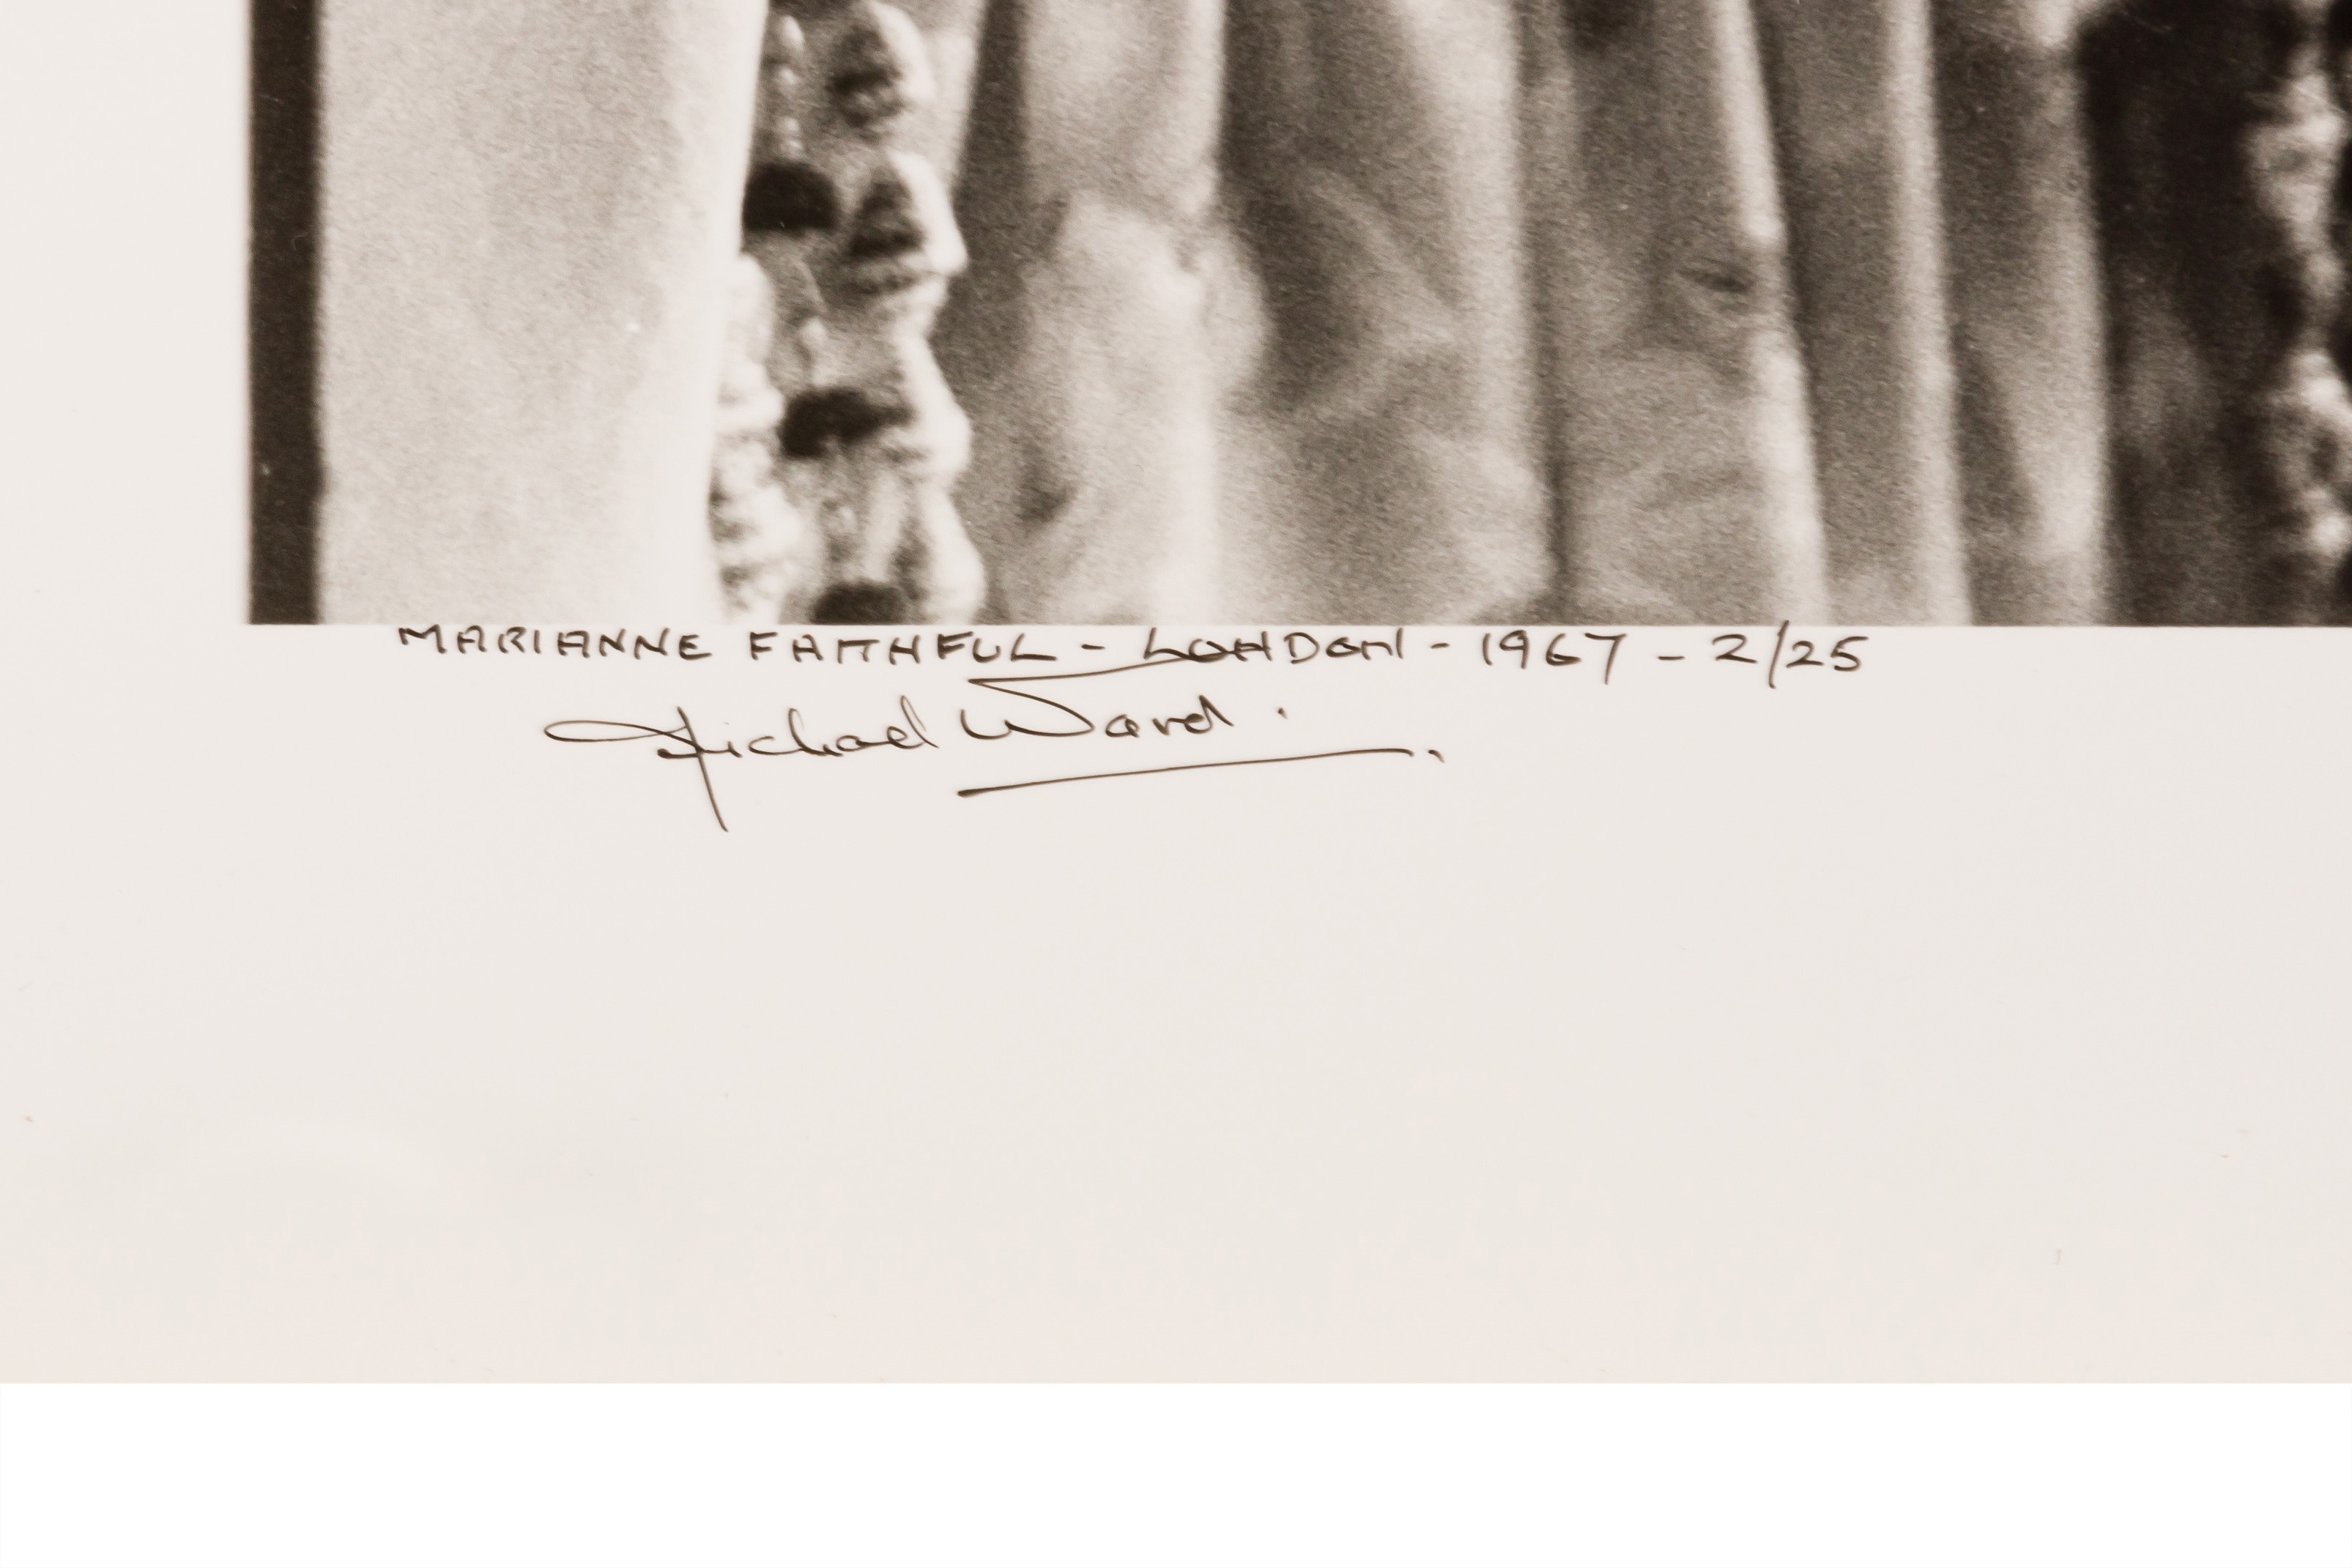 MARIANNE FAITHFUL - LONDON - 1967 - 2/25
Michael Ward.